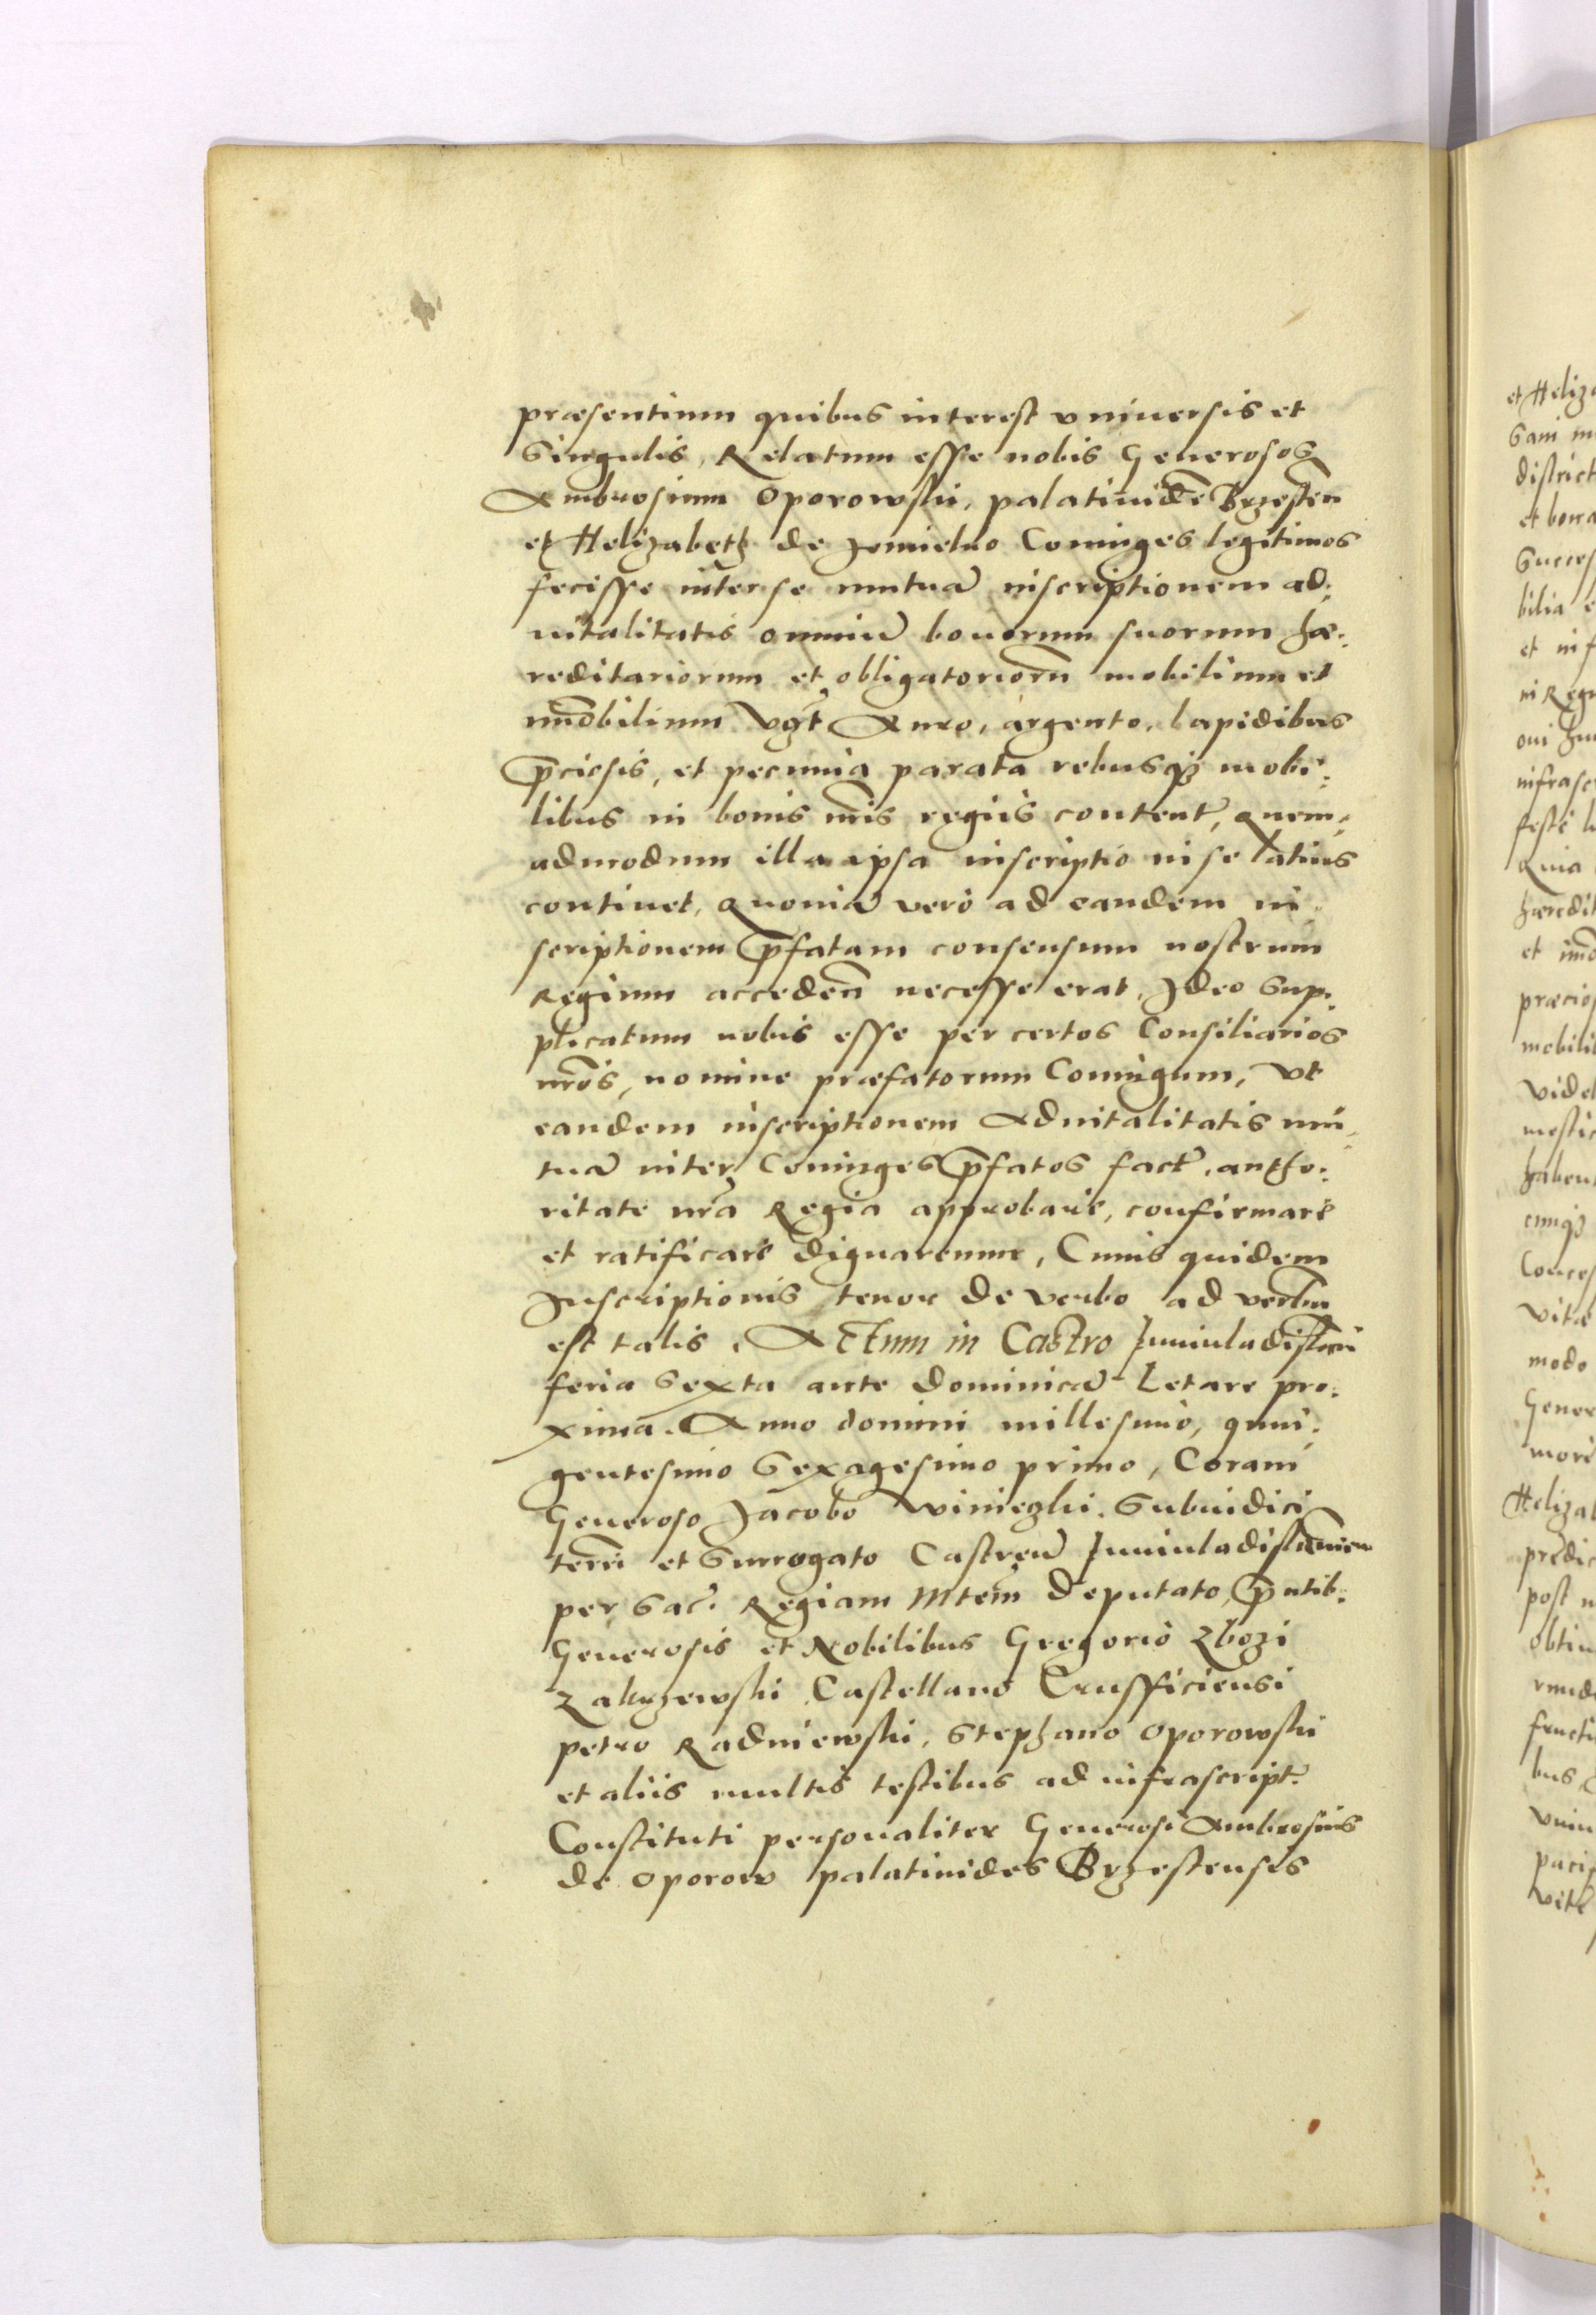 præsentium quibus interest vniuersis et
Singulis, Relatum esse nobis Generosos
Ambrosium Oporowski, palatinidē Brzesteñ
et Helizabeth de Jemielno Coniuges legitimos
fecisse inter se mutuā inscriptionem ad:
uitalitatis omniū bonorum suorum hæ:
reditariorum et obligatoriorū mobilium et
immobilium Auro, argento, lapidibus
p̄ciosis, et pecunia parata rebusq3 mobi:
libus in bonis nr̄is regiis content̄, Quem:
admodum illa ipsa inscriptio in se latius
continet, Quoniā vero ad eandem in:
scriptionem p̄fatam consensum nostrum
Regium acceden̄ necesse erat, Ideo Sup:
plicatum nobis esse per certos Consiliarios
nr̄os, nomine præfatorum Coniugum, Vt
eandem inscriptionem Aduitalitatis mu:
tuā inter Coniuges p̄fatos fact̄, autho:
ritate nr̄a Regia approbare, confirmare
et ratificare dignaremur, Cuius quidem
Inscriptionis tenor de verbo ad verbū
est talis. Actum in Castro Juniuladislauiēn
feria Sexta ante Dominicā Letare pro:
xima. Anno domini millesimo, quin:
gentesimo Sexagesimo primo, Coram
Generoso Jacobo Winieczki, Subiudici
terrē et Surrogato Castren̄ Juniuladislauien
per Sac: Regiam Mtem̄ Deputato, p̄ntib:
Generosis et Nobilibus Gregorio Zbozi
Zakrzewski Castellano Crussficiensi
petro Radniewski, Stephano Oporowski
et aliis multis testibus ad infrascript:
Constituti personaliter Generosi Ambrosius
de Oporow palatinides Brzestenses
et Heliza
district
et bona
Succes
bilia e
et in f
in Regn
infrasc
Quia
hæredit
et imo
præcios
mobilib
videl
mestic
cumq3
Conces
vitæ
modo
Gener
more
Helizab
prædic
post
obtin
fructi
bus
paci